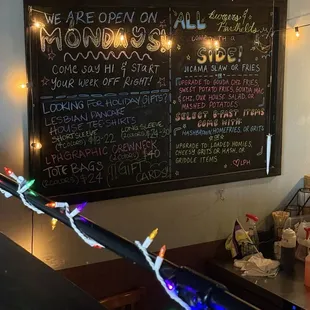 WE ARE OPEN ON
MONDAYS!
COME SAY HI & START
YOUR WEEK OFF RIGHT!
LOOKING FOR HOLIDAY GIFTS?!
LESBIAN PANCAKE
HOUSE TEE SHIRTS
SHORT SLEEVE LONG SLEEVE
GRAPHIC CREWNECK $40
TOTE BAGS GIFT
$24 CARDS!
ALL burgers &
Handhelds
SIDE!
JICAMA SLAW OR FRIES
UPGRADE TO SOUTH CHZ FRIES,
SWEET POTATO FRIES, GOUDA MAC
& CHZ, OUR HOUSE SALAD, OR
MASHED POTATOES
SELECT B-FAST ITEMS
COME WITH
HASHBROWN, HOMEFRIES, OR
GRITS
UPGRADE TO: LOADED HOMIES,
CHEESY GRITS OR HASH, OR
GRIDDLE ITEMS
LPH